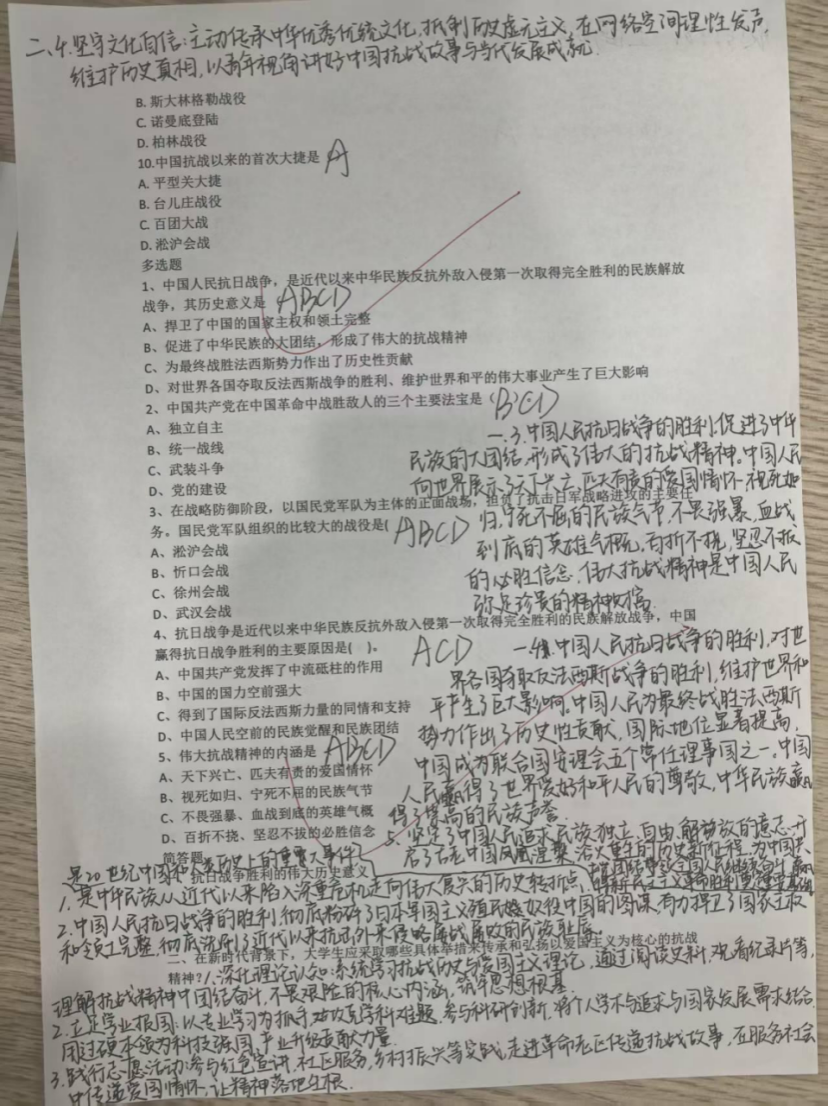 二、4.坚守文化自信:主动传承中华优秀传统文化,抵制历史虚无主义,在网络空间理性发声,
维护历史真相,以青年视角讲好中国抗战故事与当代发展成就.
B. 斯大林格勒战役
C. 诺曼底登陆
D. 柏林战役
10.中国抗战以来的首次大捷是 A
A. 平型关大捷
B. 台儿庄战役
C. 百团大战
D. 淞沪会战
多选题
1、中国人民抗日战争,是近代以来中华民族反抗外敌入侵第一次取得完全胜利的民族解放
战争,其历史意义是 ABCD
A、捍卫了中国的国家主权和领土完整
B、促进了中华民族的大团结,形成了伟大的抗战精神
C、为最终战胜法西斯势力作出了历史性贡献
D、对世界各国夺取反法西斯战争的胜利、维护世界和平的伟大事业产生了巨大影响
2、中国共产党在中国革命中战胜敌人的三个主要法宝是(BCD
A、独立自主
B、统一战线
C、武装斗争
D、党的建设
一、3.中国人民抗日战争的胜利,促进了中华
民族的大团结,形成了伟大的抗战精神。中国人民
向世界展示了天下兴亡、匹夫有责的爱国情怀,视死如
归、宁死不屈的民族气节,不畏强暴、血战
到底的英雄气概,百折不挠、坚忍不拔
的必胜信念.伟大抗战精神是中国人民
弥足珍贵的精神财富.
3、在战略防御阶段,以国民党军队为主体的正面战场,担负了抗击日军战略进攻的主要任
务。国民党军队组织的比较大的战役是( ABCD
A、淞沪会战
B、忻口会战
C、徐州会战
D、武汉会战
4、抗日战争是近代以来中华民族反抗外敌入侵第一次取得完全胜利的民族解放战争,中国
赢得抗日战争胜利的主要原因是( )。 ACD
A、中国共产党发挥了中流砥柱的作用
B、中国的国力空前强大
C、得到了国际反法西斯力量的同情和支持
D、中国人民空前的民族觉醒和民族团结
5、伟大抗战精神的内涵是 ABCD
A、天下兴亡、匹夫有责的爱国情怀
B、视死如归、宁死不屈的民族气节
C、不畏强暴、血战到底的英雄气概
D、百折不挠、坚忍不拔的必胜信念
一、4.中国人民抗日战争的胜利,对世
界各国夺取反法西斯战争的胜利,维护世界和
平产生了巨大影响。中国人民为最终战胜法西斯
势力作出了历史性贡献,国际地位显著提高,
中国成为联合国安理会五个常任理事国之一,中国
人民赢得了世界爱好和平人民的尊敬,中华民族赢
得了崇高的民族声誉.
5、坚定了中国人民追求民族独立、自由、解放的意志,开
启了古老中国凤凰涅槃、浴火重生的历史新征程.为中国共
简答题
一、抗日战争胜利的伟大历史意义
1.是中华民族从近代以来陷入深重危机走向伟大复兴的历史转折点,
2.中国人民抗日战争的胜利,彻底粉碎了日本军国主义殖民奴役中国的图谋,有力捍卫了国家主权
和领土完整,彻底洗刷了近代以来抗击外来侵略屡战屡败的民族耻辱.
二、在新时代背景下,大学生应采取哪些具体举措来传承和弘扬以爱国主义为核心的抗战
精神?1.深化理论认知:系统学习抗战历史与爱国主义理论,通过阅读史料,观看纪录片等,
理解抗战精神中团结奋斗、不畏艰险的核心内涵,筑牢思想根基
2.立足学业报国:以专业学习为抓手,攻克学科难题,参与科研创新,将个人学术追求与国家发展需求结合
用过硬本领为科技强国、产业升级贡献力量.
3.践行志愿活动:参与红色宣讲、社区服务,乡村振兴等实践,走进革命老区传递抗战故事,在服务社会
中传递爱国情怀,让精神落地生根.